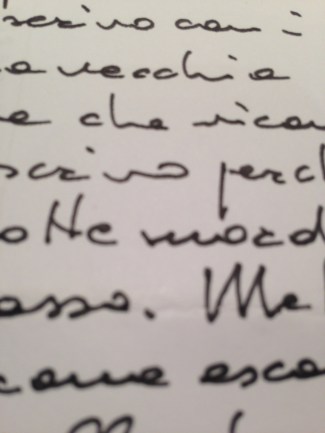 scrivo con i
a vecchia
e che rican
scrivo perch
otte mord
asso. Me
come esca